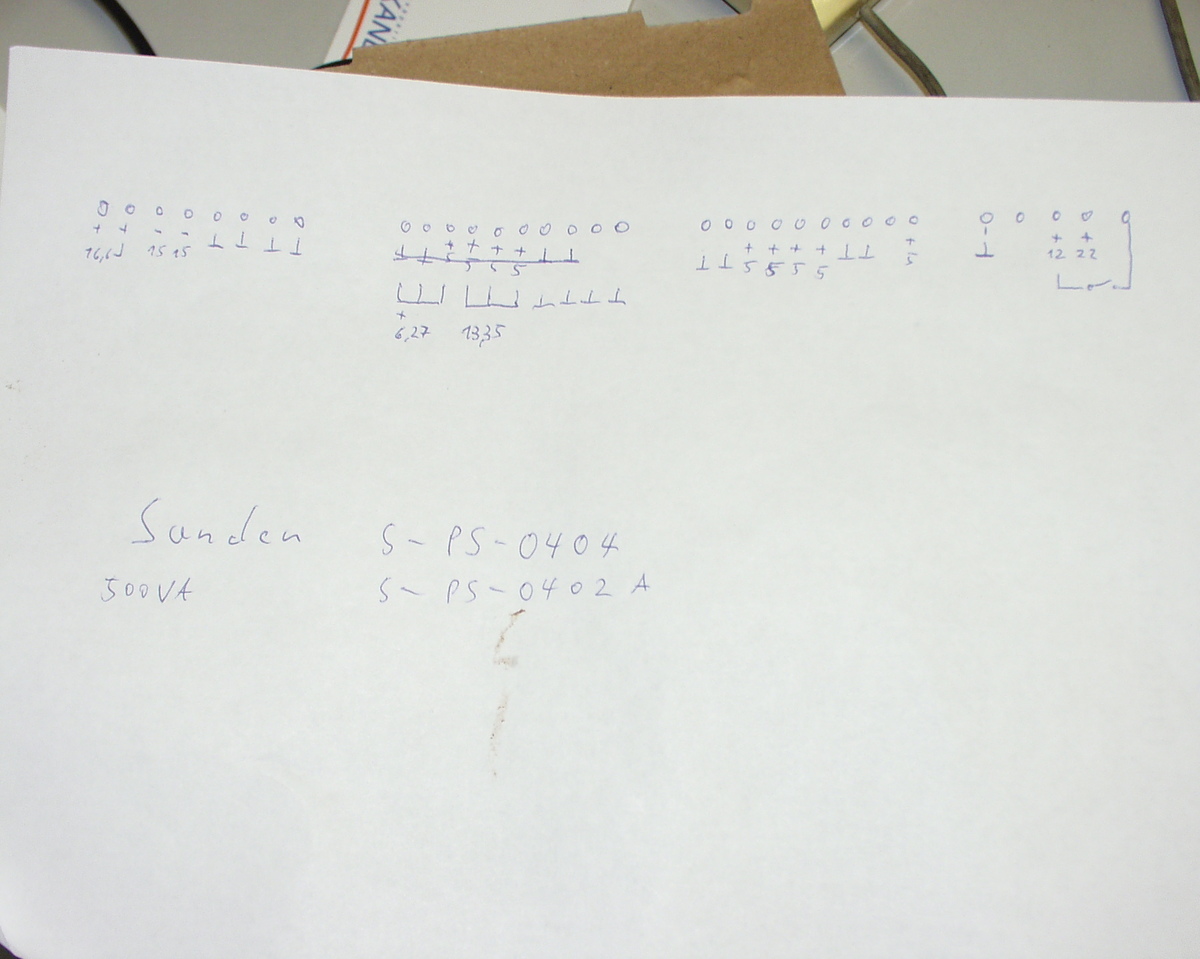 KANE
o o o o o o o o
+ + - - ⊥ ⊥ ⊥ ⊥
16,6 15 15
o o o o o o o o o o
⊥ ⊥ + + + + ⊥ ⊥
5 5 5 5
+
6,27 13,35
o o o o o o o o o o
⊥ ⊥ + + + + ⊥ ⊥ +
5 5 5 5 5
o o o o o
- + +
⊥ 12 22
Sanden S-PS-0404
500VA S-PS-0402 A